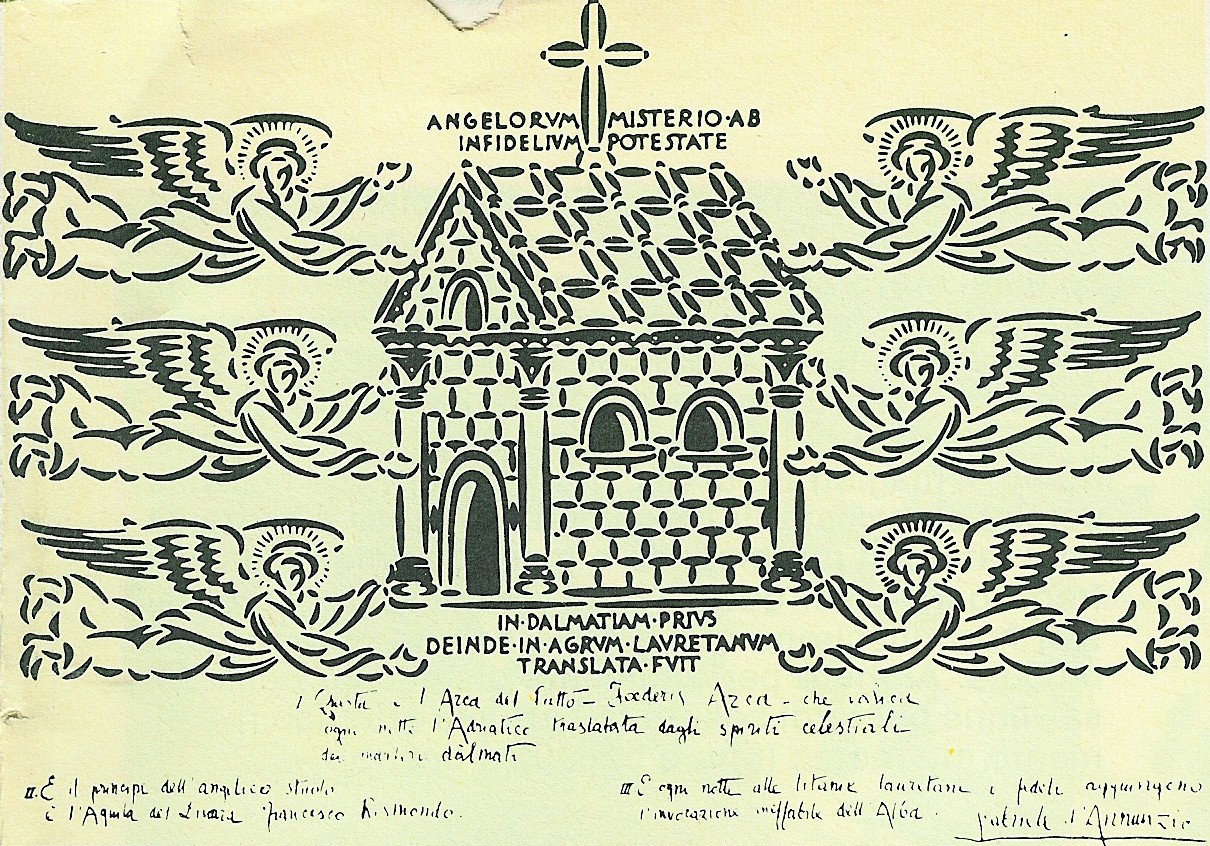 ANGELORVM MISTERIO·AB
INFIDELIVM POTESTATE
IN·DALMATIAM·PRIVS
DEINDE·IN·AGRVM·LAVRETANVM
TRANSLATA·FVIT
I Questa è l'Arca del Patto – Foederis Arca – che valica
ogni notte l'Adriatico traslatata dagli spiriti celestiali
dei martiri dàlmati
II. E il principe dell'angelico stuolo
è l'Aquila del Dinara Francesco Rismondo.
III E ogni notte alle litanie lauretane i fedeli aggiungono
l'invocazione ineffabile dell'Alba.
Gabriele d'Annunzio